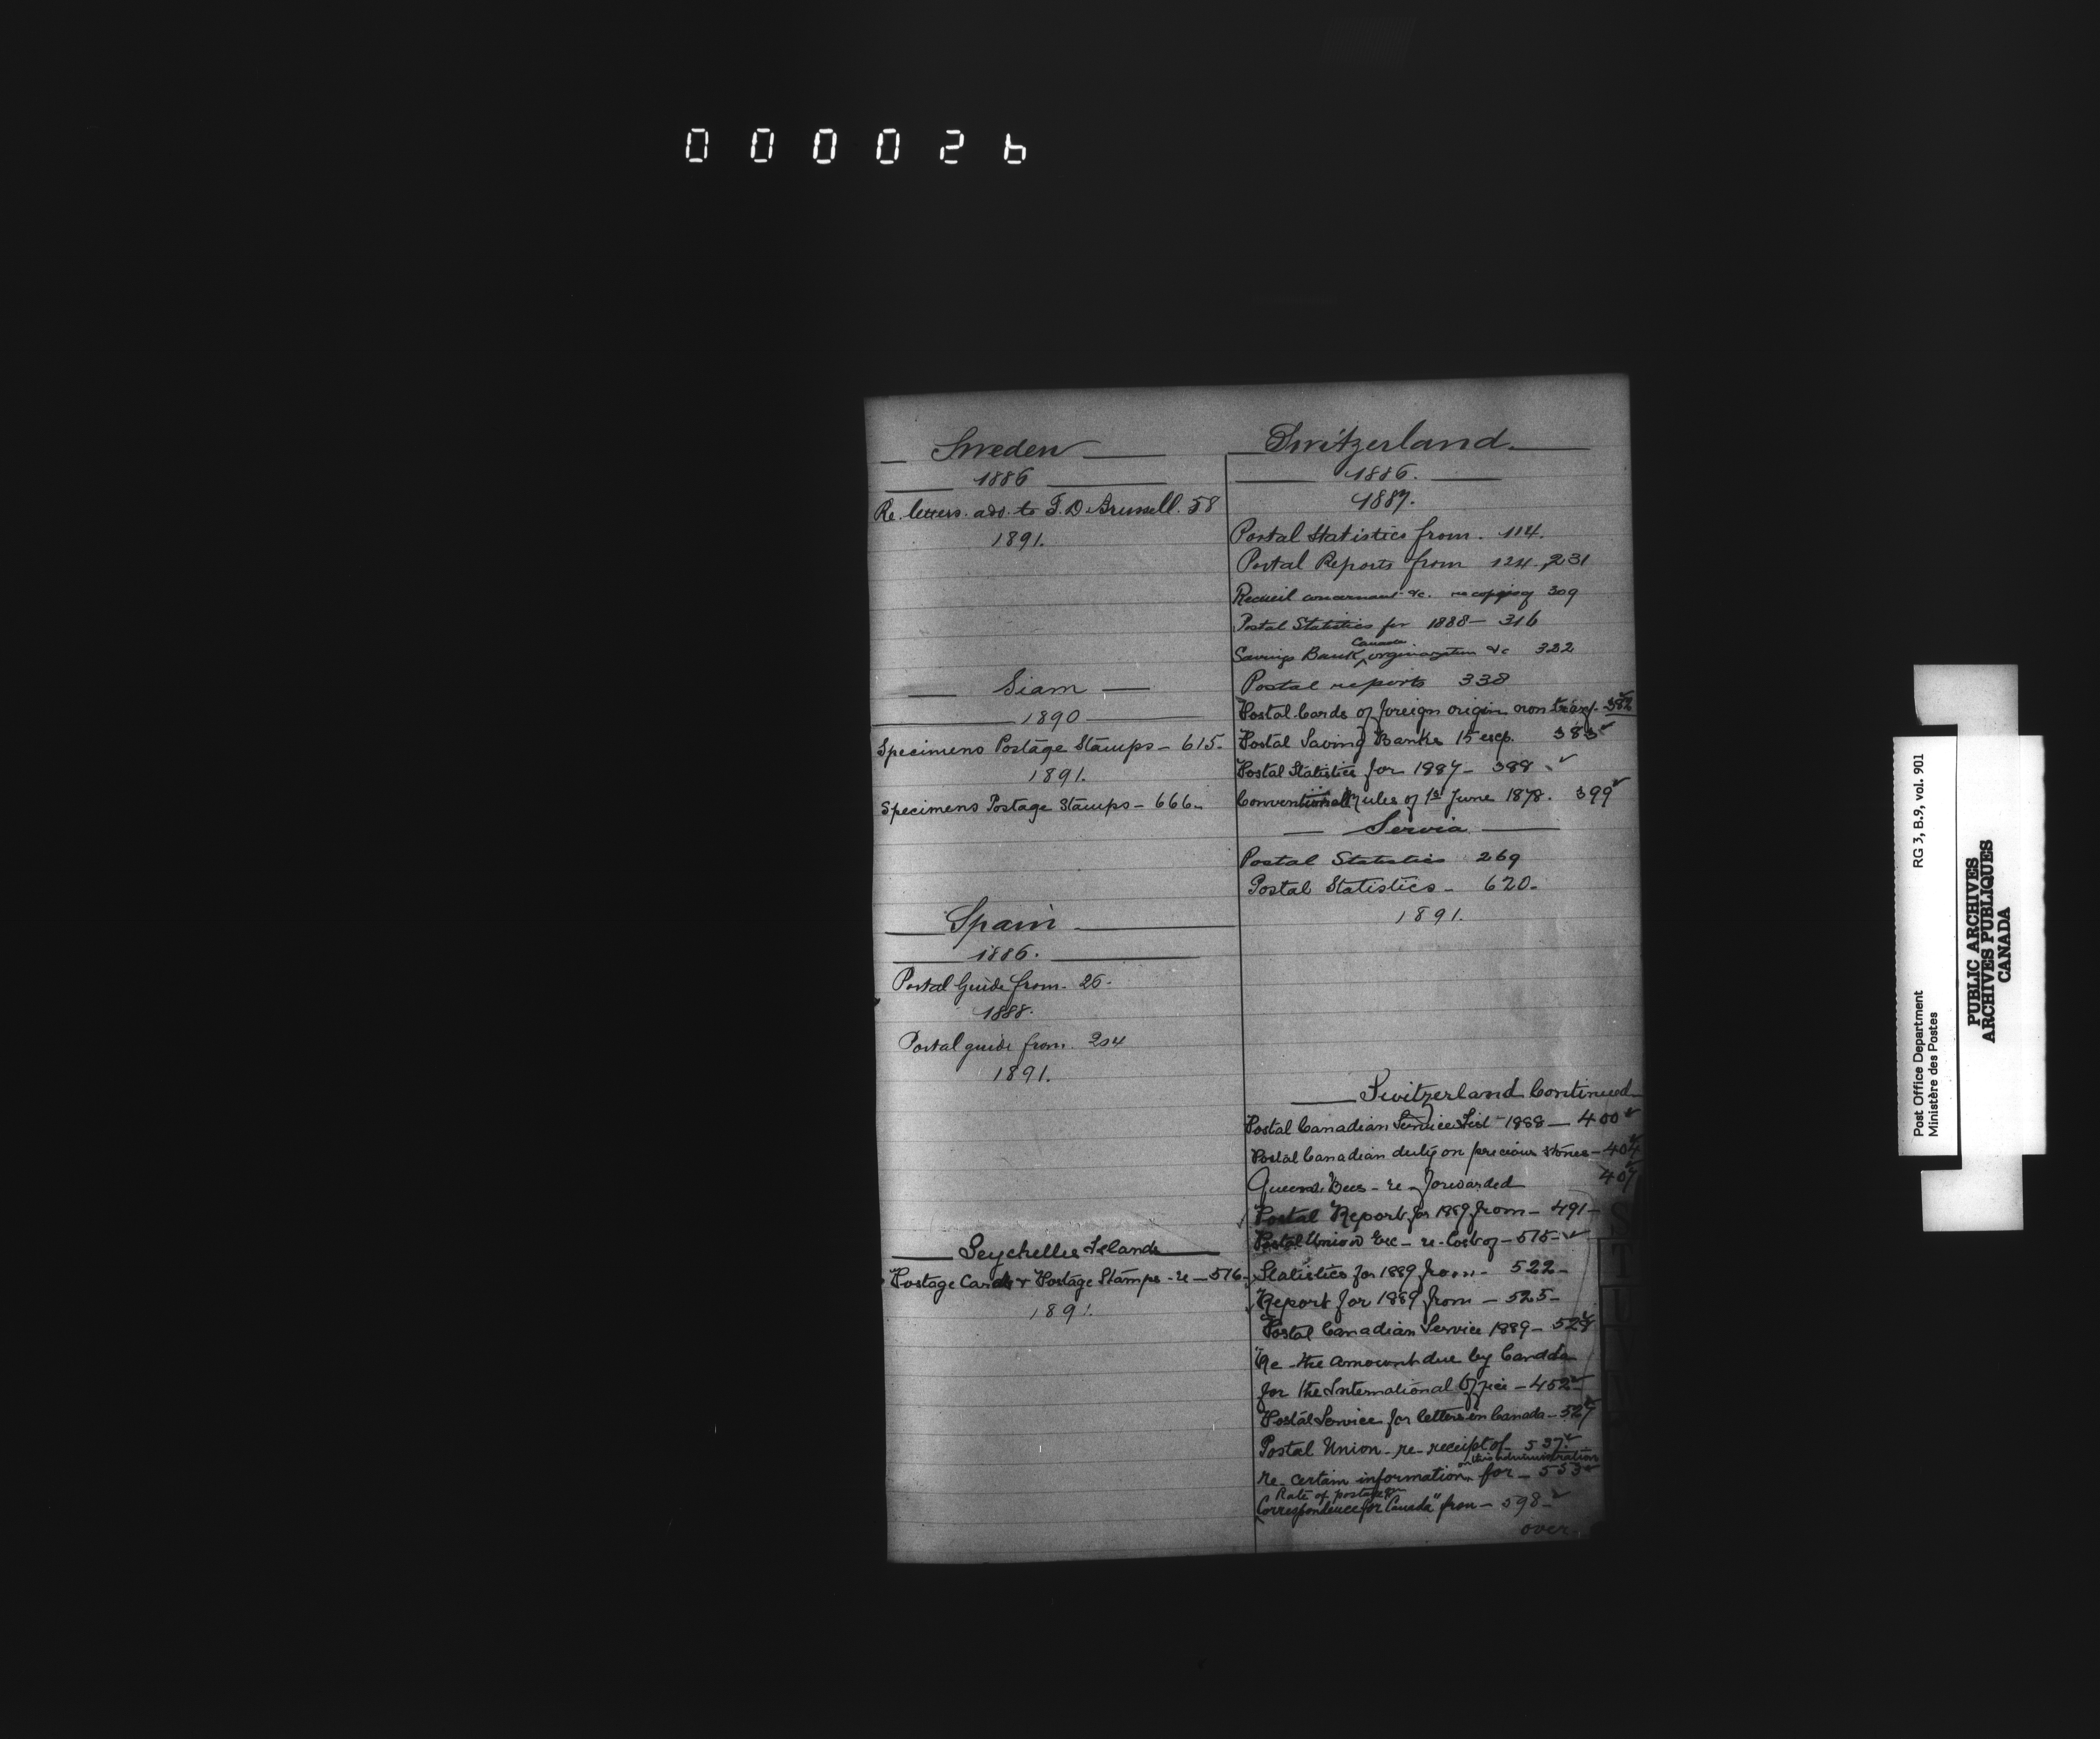 000026
Sweden
1886
Re. letters. add. to F. D. 58
1891.
Siam
1890
Specimens Postage Stamps - 615-
1891.
Specimens Postage Stamps - 666-
Spain
1886.
Postal Guide from - 26-
1888.
Postal guide from. 204
1891.
Seychelles Islands
Postage Cards & Postage Stamps - re - 516-
1891.
Switzerland
1886.
1887.
Postal Statistics from. 114.
Postal Reports from 124, 231
Recueil concernant &c. re copying 309
Postal Statistics for 1888 - 316
Canada
Savings Bank ^ organization &c 322
Postal reports 338
Postal Cards of foreign origin non transf. 382
Postal Saving Banks 15 383
Postal Statistics for 1887 - 388
Conventional rules of 1st June 1878. 399
Servia
Postal Statistics 269
Postal Statistics - 620-
1891.
Switzerland Continued
Postal Canadian Service List - 1888 - 400
Postal Canadian duty on precious stones - 404
Queens Bees - re - forwarded 407
Postal Report for 1889 from - 491-
Postal Union - re - Cost of - 515-
Statistics for 1889 from - 522-
Report for 1889 from - 525-
Postal Canadian Service 1889 - 528
Re - the amount due by Canada
for the International Office - 452-
Postal Service for letters in Canada - 527
Postal Union - re - receipt of - 537-
on this administration
re - certain information ^ for - 553
Rate of postage on
^ Correspondence for Canada" from - 598-
over
Post Office Department RG 3, B.9, vol. 901
Ministère des Postes
PUBLIC ARCHIVES
ARCHIVES PUBLIQUES
CANADA